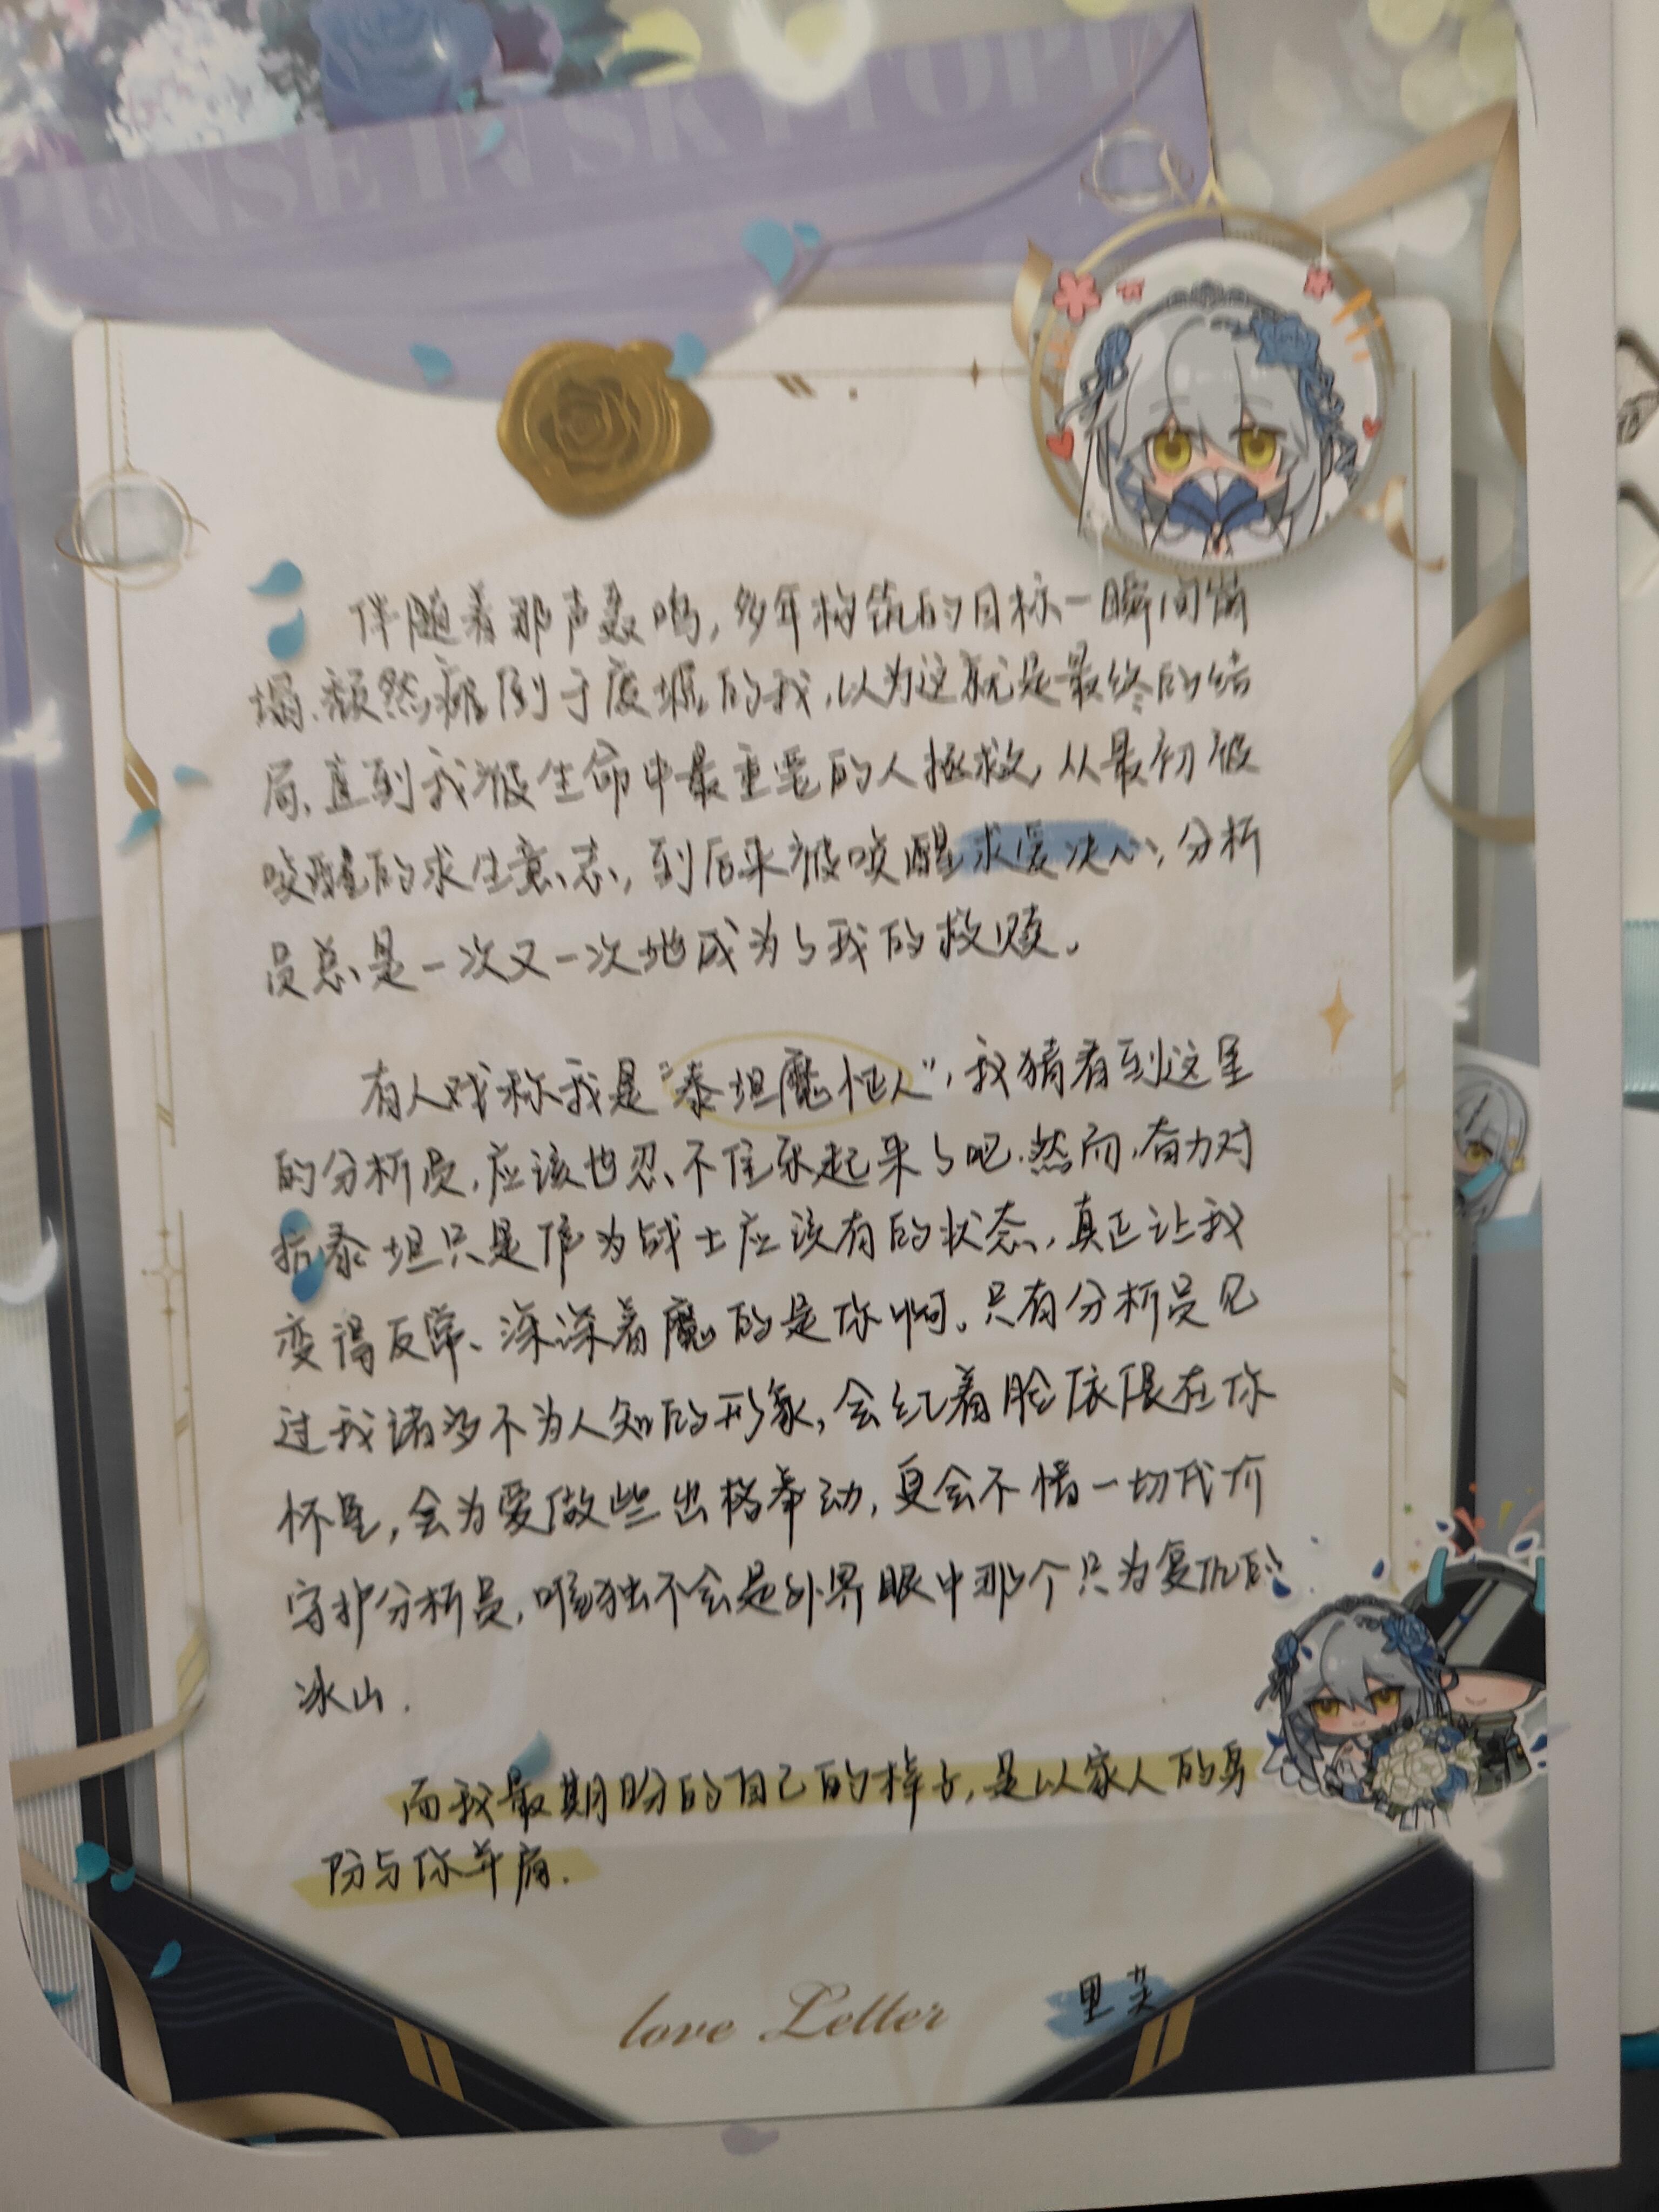 ENSE IN SKYTOPI
伴随着那声轰鸣,多年构筑的目标一瞬间崩
塌、颓然瘫倒于废墟的我,以为这就是最终的结
局、直到我被生命中最重要的人拯救,从最初被
唤醒的求生意志,到后来被唤醒求爱决心,分析
员总是一次又一次地成为了我的救赎。
有人戏称我是“泰坦魔怔人”,我猜看到这里
的分析员,应该也忍不住乐起来了吧.然而,奋力对
抗泰坦只是作为战士应该有的状态,真正让我
变得反常、深深着魔的是你啊。只有分析员见
过我诸多不为人知的形象,会红着脸依偎在你
怀里,会为爱做些出格举动,更会不惜一切代价
守护分析员,唯独不会是外界眼中那个只为复仇的
冰山.
而我最期盼的自己的样子,是以家人的身
份与你并肩.
love Letter
里芙